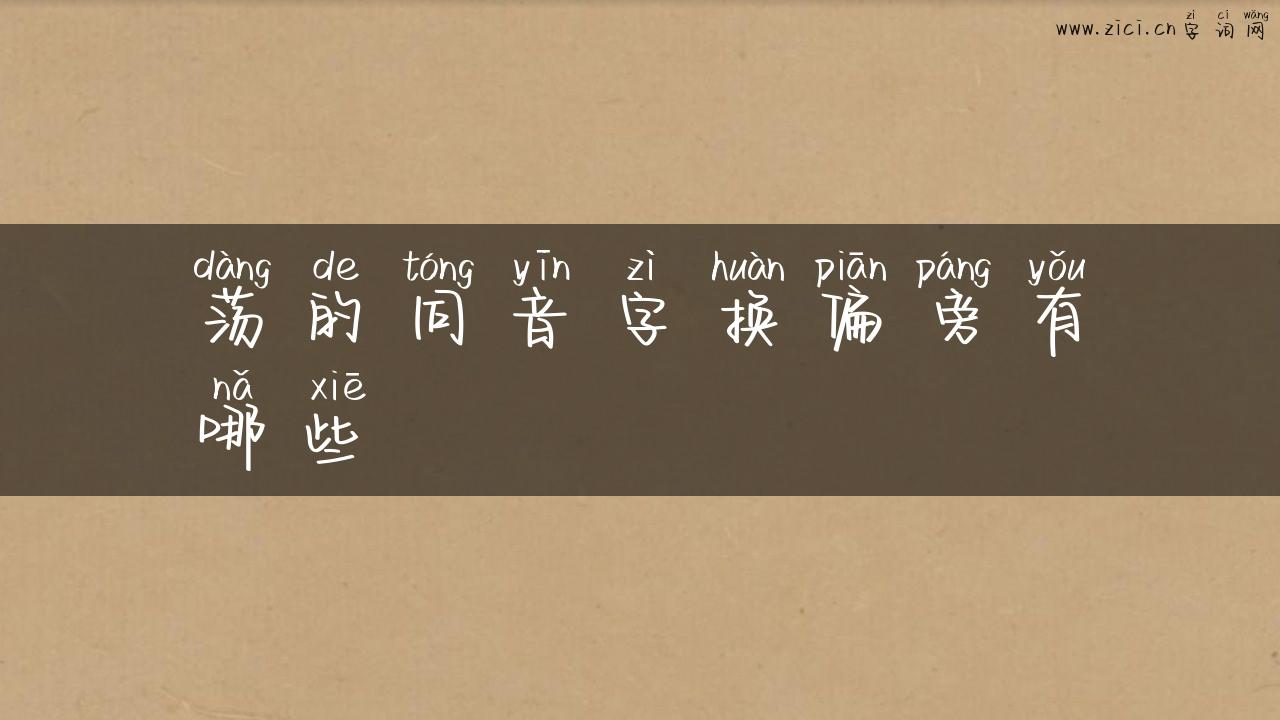 zì cí wǎng
www.zici.cn 字词网
dàng de tóng yīn zì huàn piān páng yǒu
荡的同音字换偏旁有
nǎ xiē
哪些